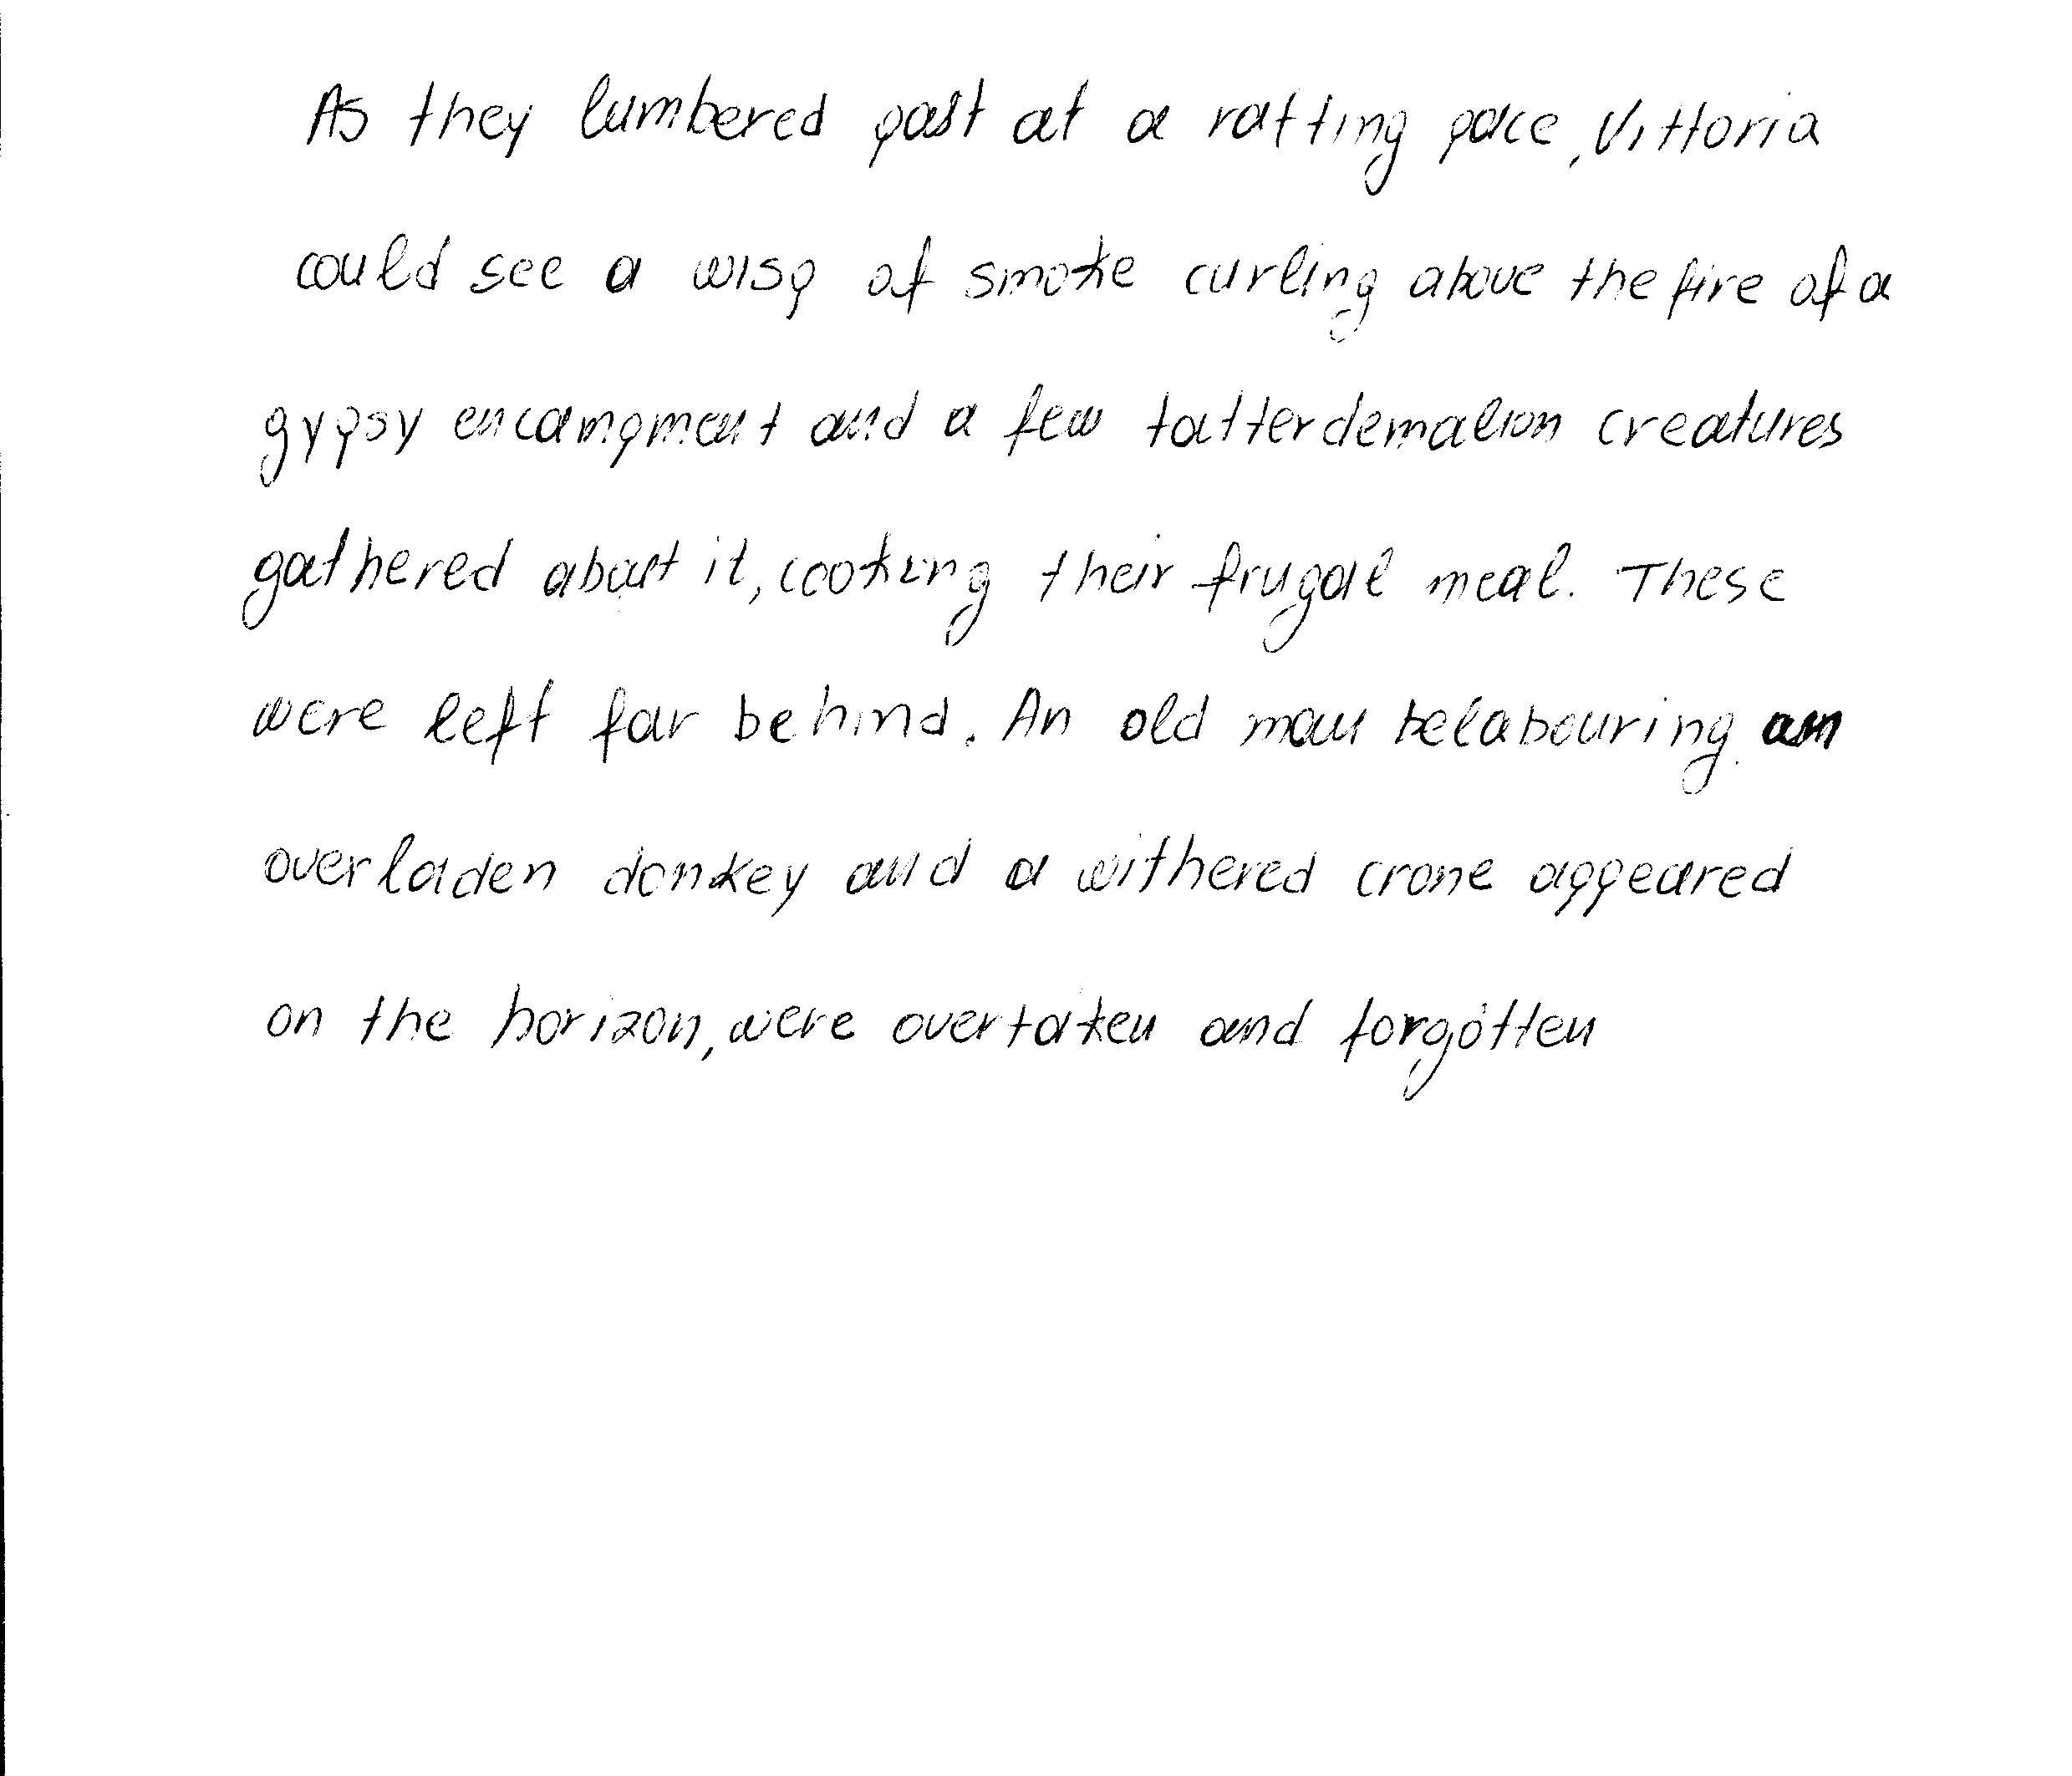 As they lumbered past at a ratting pace, Vittoria
could see a wisp of smoke curling above the fire of a
gypsy encampment and a few tatterdemalion creatures
gathered about it, cooking their frugal meal. These
were left far behind. An old man belabouring an
overladen donkey and a withered crone appeared
on the horizon, were overtaken and forgotten